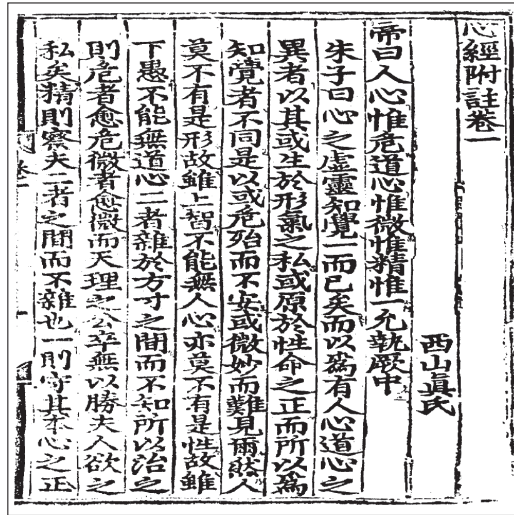 心經附註卷一
西山眞氏
帝曰人心惟危道心惟微惟精惟一允執厥中
朱子曰心之虛靈知覺一而已矣而以爲有人心道心之
異者以其或生於形氣之私或原於性命之正而所以爲
知覺者不同是以或危殆而不安或微妙而難見爾然人
莫不有是形故雖上智不能無人心亦莫不有是性故雖
下愚不能無道心二者雜於方寸之間而不知所以治之
則危者愈危微者愈微而天理之公卒無以勝夫人欲之
私矣精則察夫二者之間而不雜也一則守其本心之正